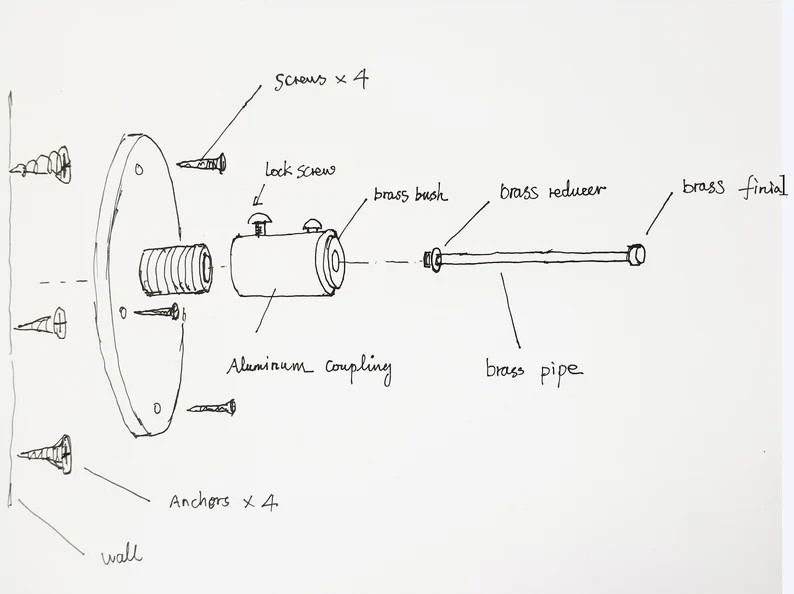 Screws x 4
Lock screw
brass bush
brass reducer
brass finial
Aluminum coupling
brass pipe
Anchors x 4
wall